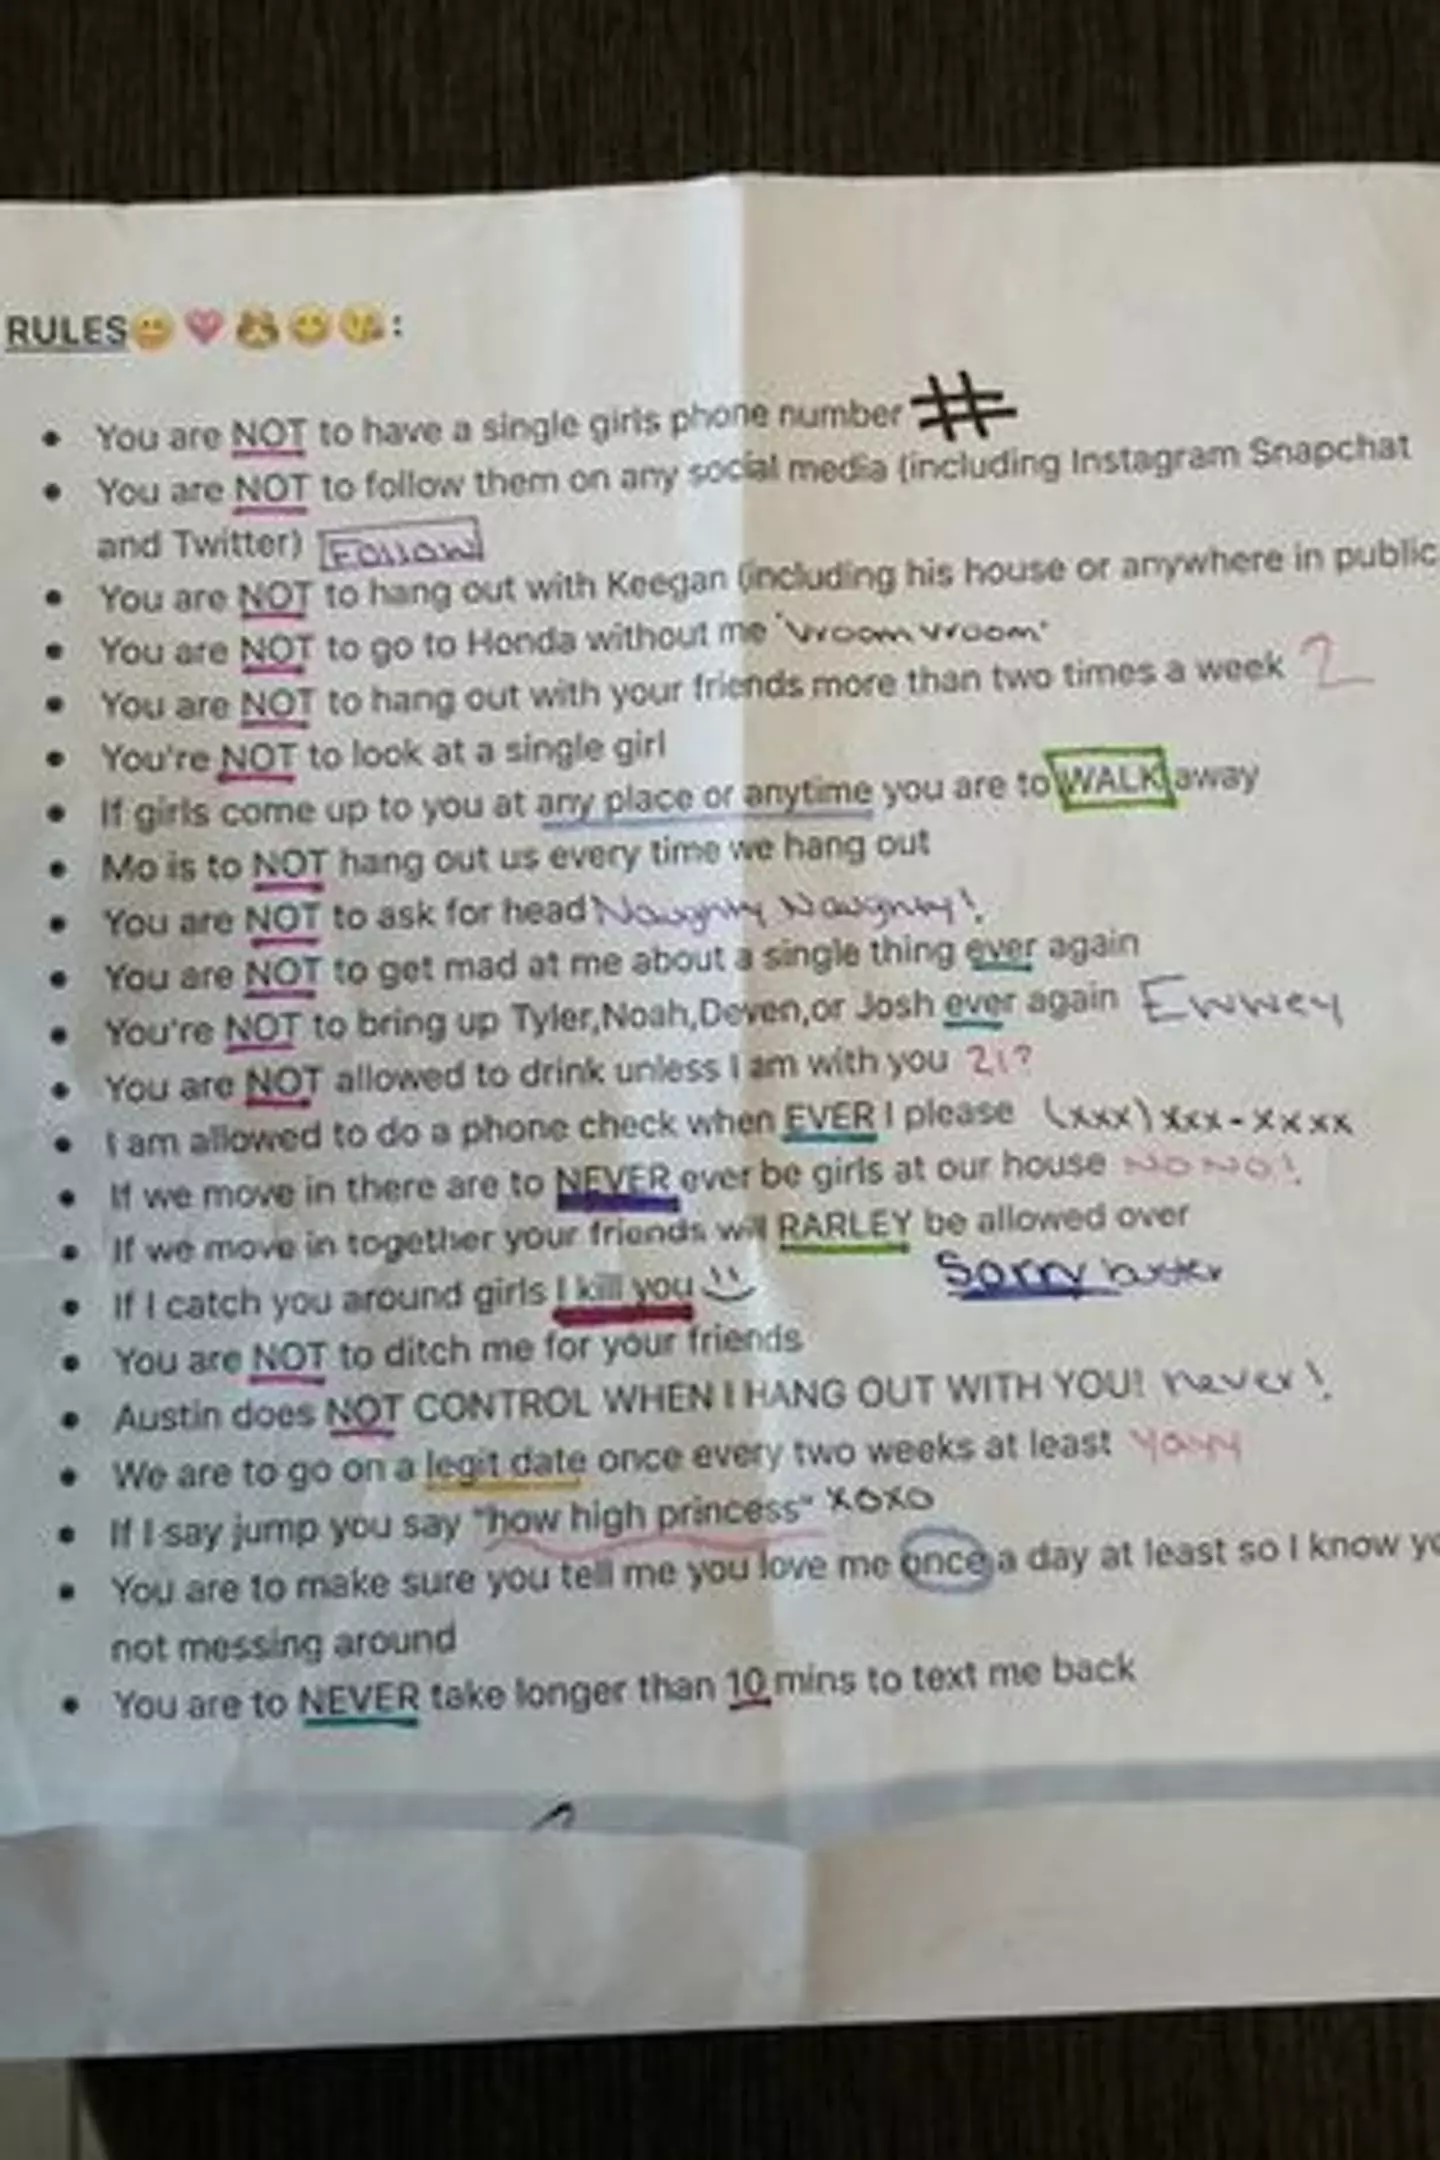 RULES😄💗🙈😊😘:
• You are NOT to have a single girls phone number #
• You are NOT to follow them on any social media (including Instagram Snapchat
and Twitter) Follow
• You are NOT to hang out with Keegan (including his house or anywhere in public
• You are NOT to go to Honda without me "vroom vroom"
• You are NOT to hang out with your friends more than two times a week 2
• You're NOT to look at a single girl
• If girls come up to you at any place or anytime you are to WALK away
• Mo is to NOT hang out us every time we hang out
• You are NOT to ask for head Naughty Naughty!
• You are NOT to get mad at me about a single thing ever again
• You're NOT to bring up Tyler,Noah,Deven,or Josh ever again Ewwey
• You are NOT allowed to drink unless I am with you 21?
• I am allowed to do a phone check when EVER I please (xxx)xxx-xxxx
• If we move in there are to NEVER ever be girls at our house NO NO!
• If we move in together your friends will RARLEY be allowed over
Sorry buster
• If I catch you around girls I kill you :)
• You are NOT to ditch me for your friends
• Austin does NOT CONTROL WHEN I HANG OUT WITH YOU! never!
• We are to go on a legit date once every two weeks at least yayy
• If I say jump you say "how high princess" xoxo
• You are to make sure you tell me you love me once a day at least so I know yo
not messing around
• You are to NEVER take longer than 10 mins to text me back